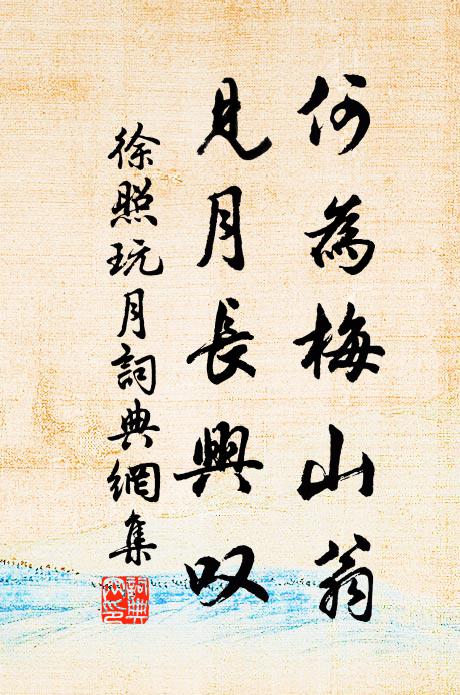 何為梅山翁
見月長興叹
徐照玩月詞典網集